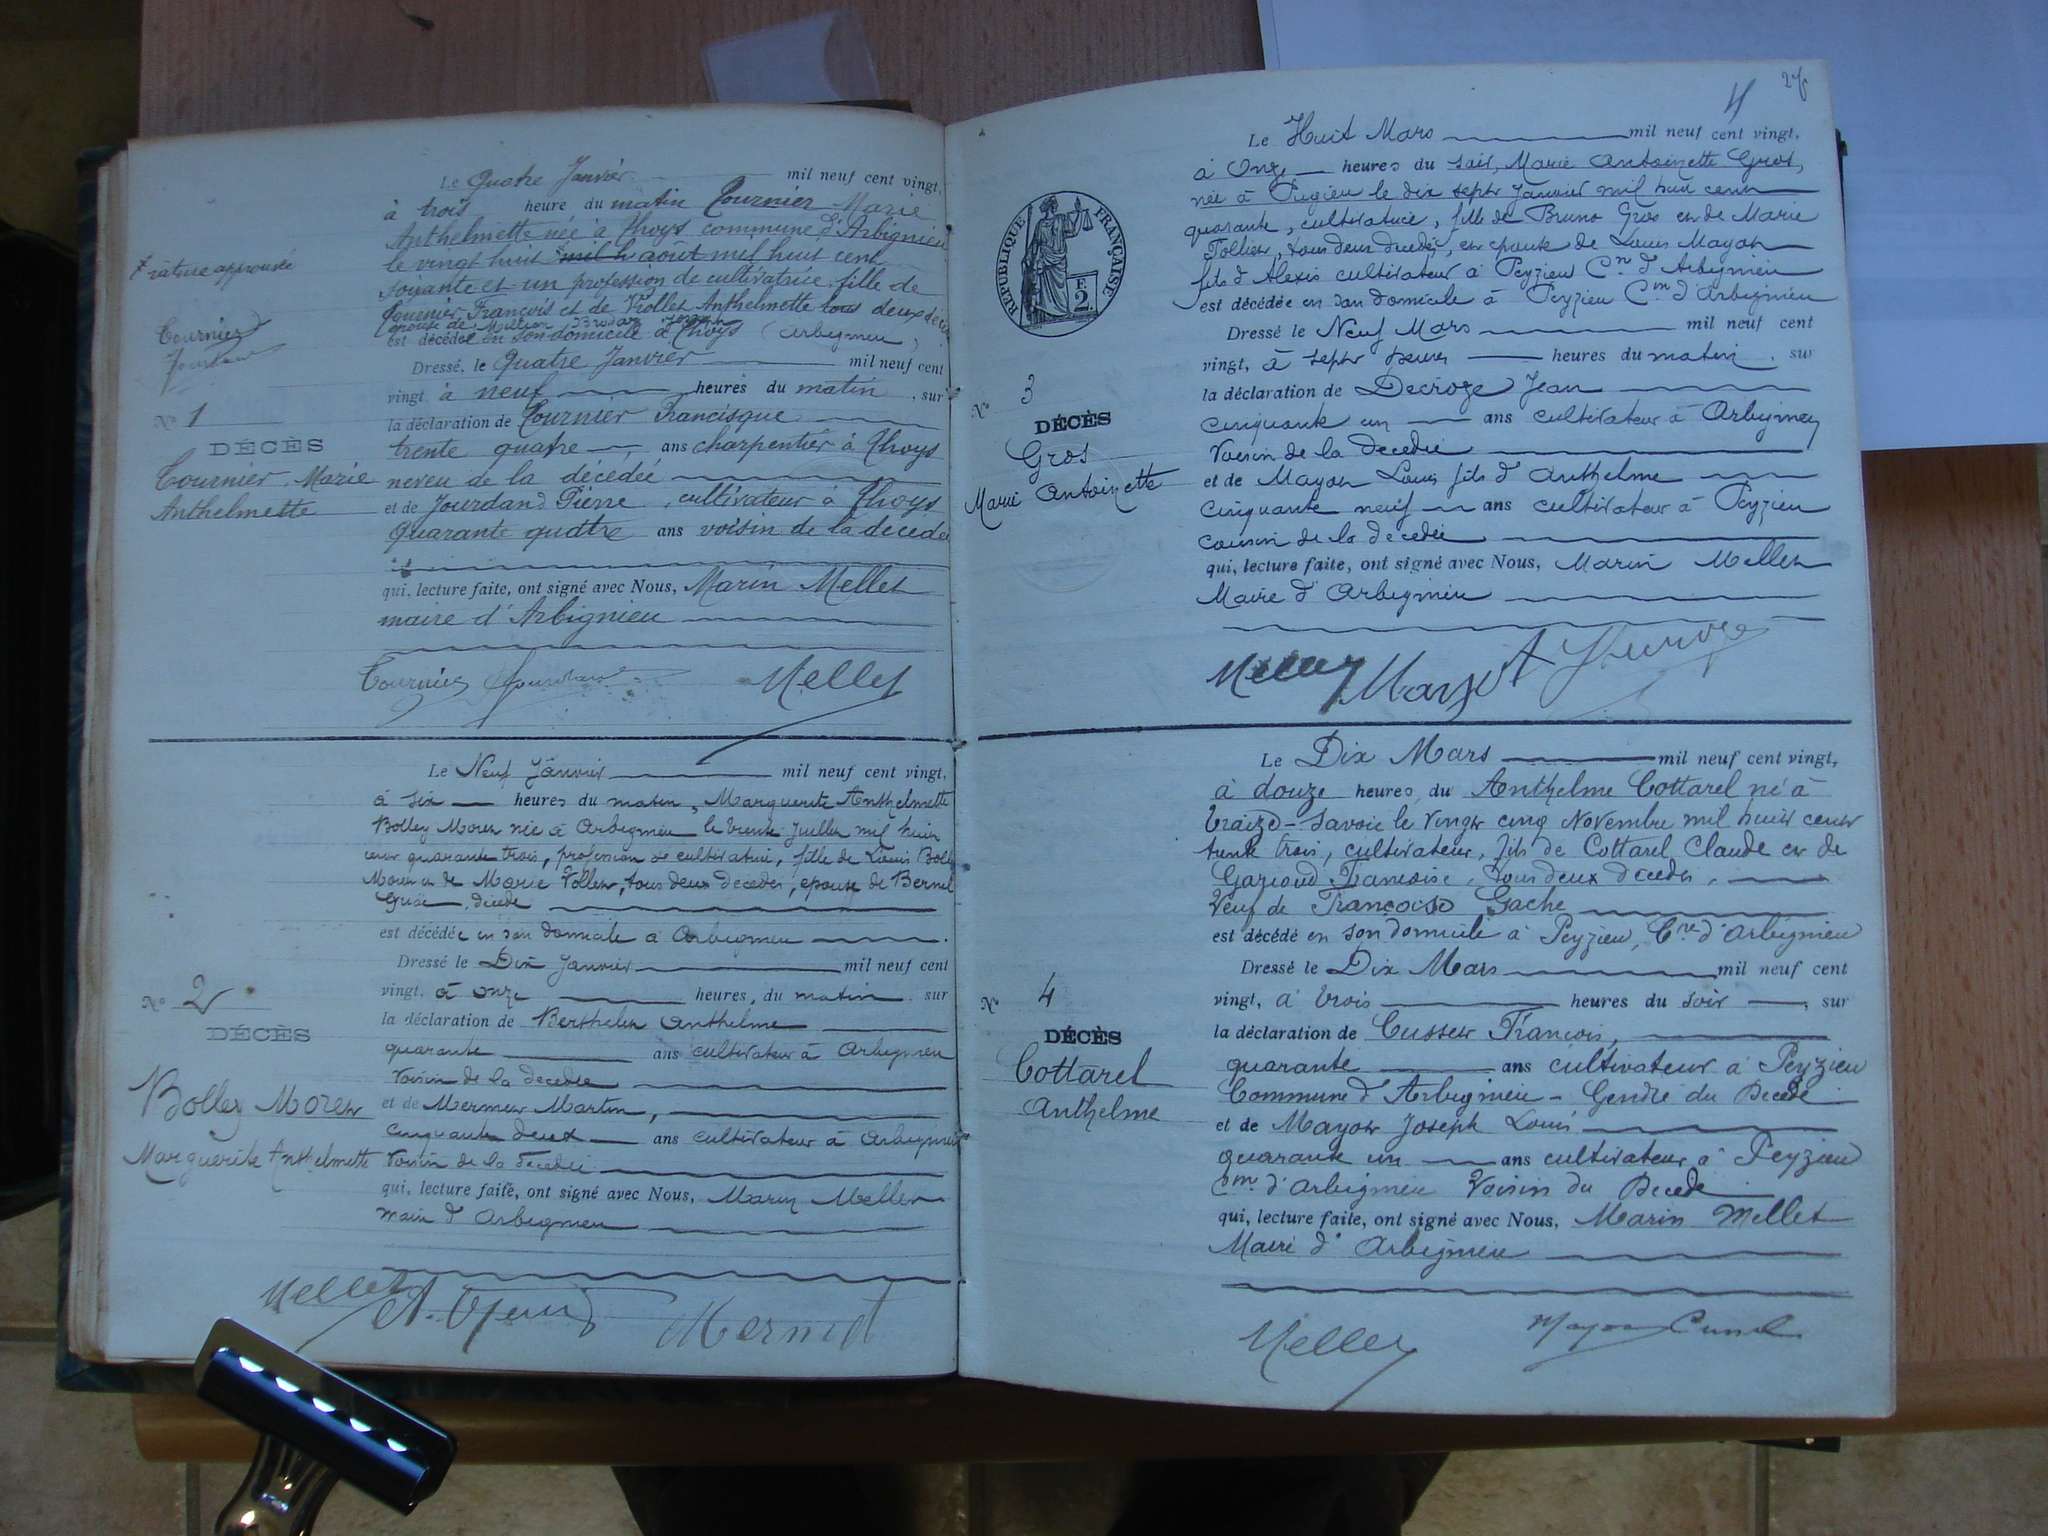 Le Quatre Janvier mil neuf cent vingt,
à trois heure du matin Tournier Marie
Anthelmette née à Thoys commune d'Arbignieu
le vingt huit août mil huit cent
soixante et un profession de cultivatrice fille de
Tournier François et de Viollet Anthelmette tous deux
épouse de
est décédée en son domicile à Thoys (Arbignieu)
Dressé, le Quatre Janvier mil neuf cent
vingt à neuf heures du matin, sur
la déclaration de Tournier Francisque
trente quatre ans charpentier à Thoys
neveu de la décédée
et de Jourdand Pierre, cultivateur à Thoys
Quarante quatre ans voisin de la décédé
qui, lecture faite, ont signé avec Nous, Marin Mellet
maire d'Arbignieu
Tournier Mellet
rature approuvée
Tournier
N° 1
DÉCÈS
Tournier Marie
Anthelmette
Le Neuf Janvier mil neuf cent vingt,
à six heures du matin, Marguerite Anthelmette
Bolley Moret née à Arbignieu le trente Juillet mil huit
cent quarante trois, profession de cultivatrice, fille de Louis Bolley
Moret et de Marie Vollet, tous deux décédés, épouse de Bernel
décédé
est décédée en son domicile à Arbignieu
Dressé le Dix Janvier mil neuf cent
vingt, à onze heures, du matin, sur
la déclaration de Berthelet Anthelme
quarante ans cultivateur à Arbignieu
voisin de la décédée
et de Mermet Martin,
cinquante deux ans cultivateur à Arbignieu
voisin de la décédée
qui, lecture faite, ont signé avec Nous, Marin Mellet
maire d'Arbignieu
Mellet
N° 2
DÉCÈS
Bolley Moret
Marguerite Anthelmette
4
Le Huit Mars mil neuf cent vingt,
à Onze heures du soir, Marie Antoinette Gros,
née à Pugieu le dix sept Janvier mil huit cent
quarante, cultivatrice, fille de Bruno Gros et de Marie
Tollier, tous deux décédés, et épouse de Louis Mayot
fils d'Alexis cultivateur à Peyzieu Cne d'Arbignieu
est décédée en son domicile à Peyzieu Cne d'Arbignieu
Dressé le Neuf Mars mil neuf cent
vingt, à sept heures heures du matin, sur
la déclaration de Decroze Jean
cinquante un ans cultivateur à Arbignieu
Voisin de la décédée
et de Mayot Louis fils d'Anthelme
cinquante neuf ans cultivateur à Peyzieu
cousin de la décédée
qui, lecture faite, ont signé avec Nous, Marin Mellet
Maire d'Arbignieu
Mellet Mayot
RÉPUBLIQUE FRANÇAISE
F.
2
N° 3
DÉCÈS
Gros
Marie Antoinette
Le Dix Mars mil neuf cent vingt,
à douze heures du Anthelme Cottarel né à
Traize - Savoie le vingt cinq Novembre mil huit cent
trente trois, cultivateur, fils de Cottarel Claude et de
Françoise, tous deux décédés,
Veuf de Françoise Gache
est décédé en son domicile à Peyzieu, Cne d'Arbignieu
Dressé le Dix Mars mil neuf cent
vingt, à trois heures du soir, sur
la déclaration de Cusset François,
quarante ans cultivateur à Peyzieu
Commune d'Arbignieu - Gendre du Décédé
et de Mayot Joseph Louis
quarante un ans cultivateur à Peyzieu
Cne d'Arbignieu Voisin du Décédé
qui, lecture faite, ont signé avec Nous, Marin Mellet
Maire d'Arbignieu
Mellet
N° 4
DÉCÈS
Cottarel
Anthelme